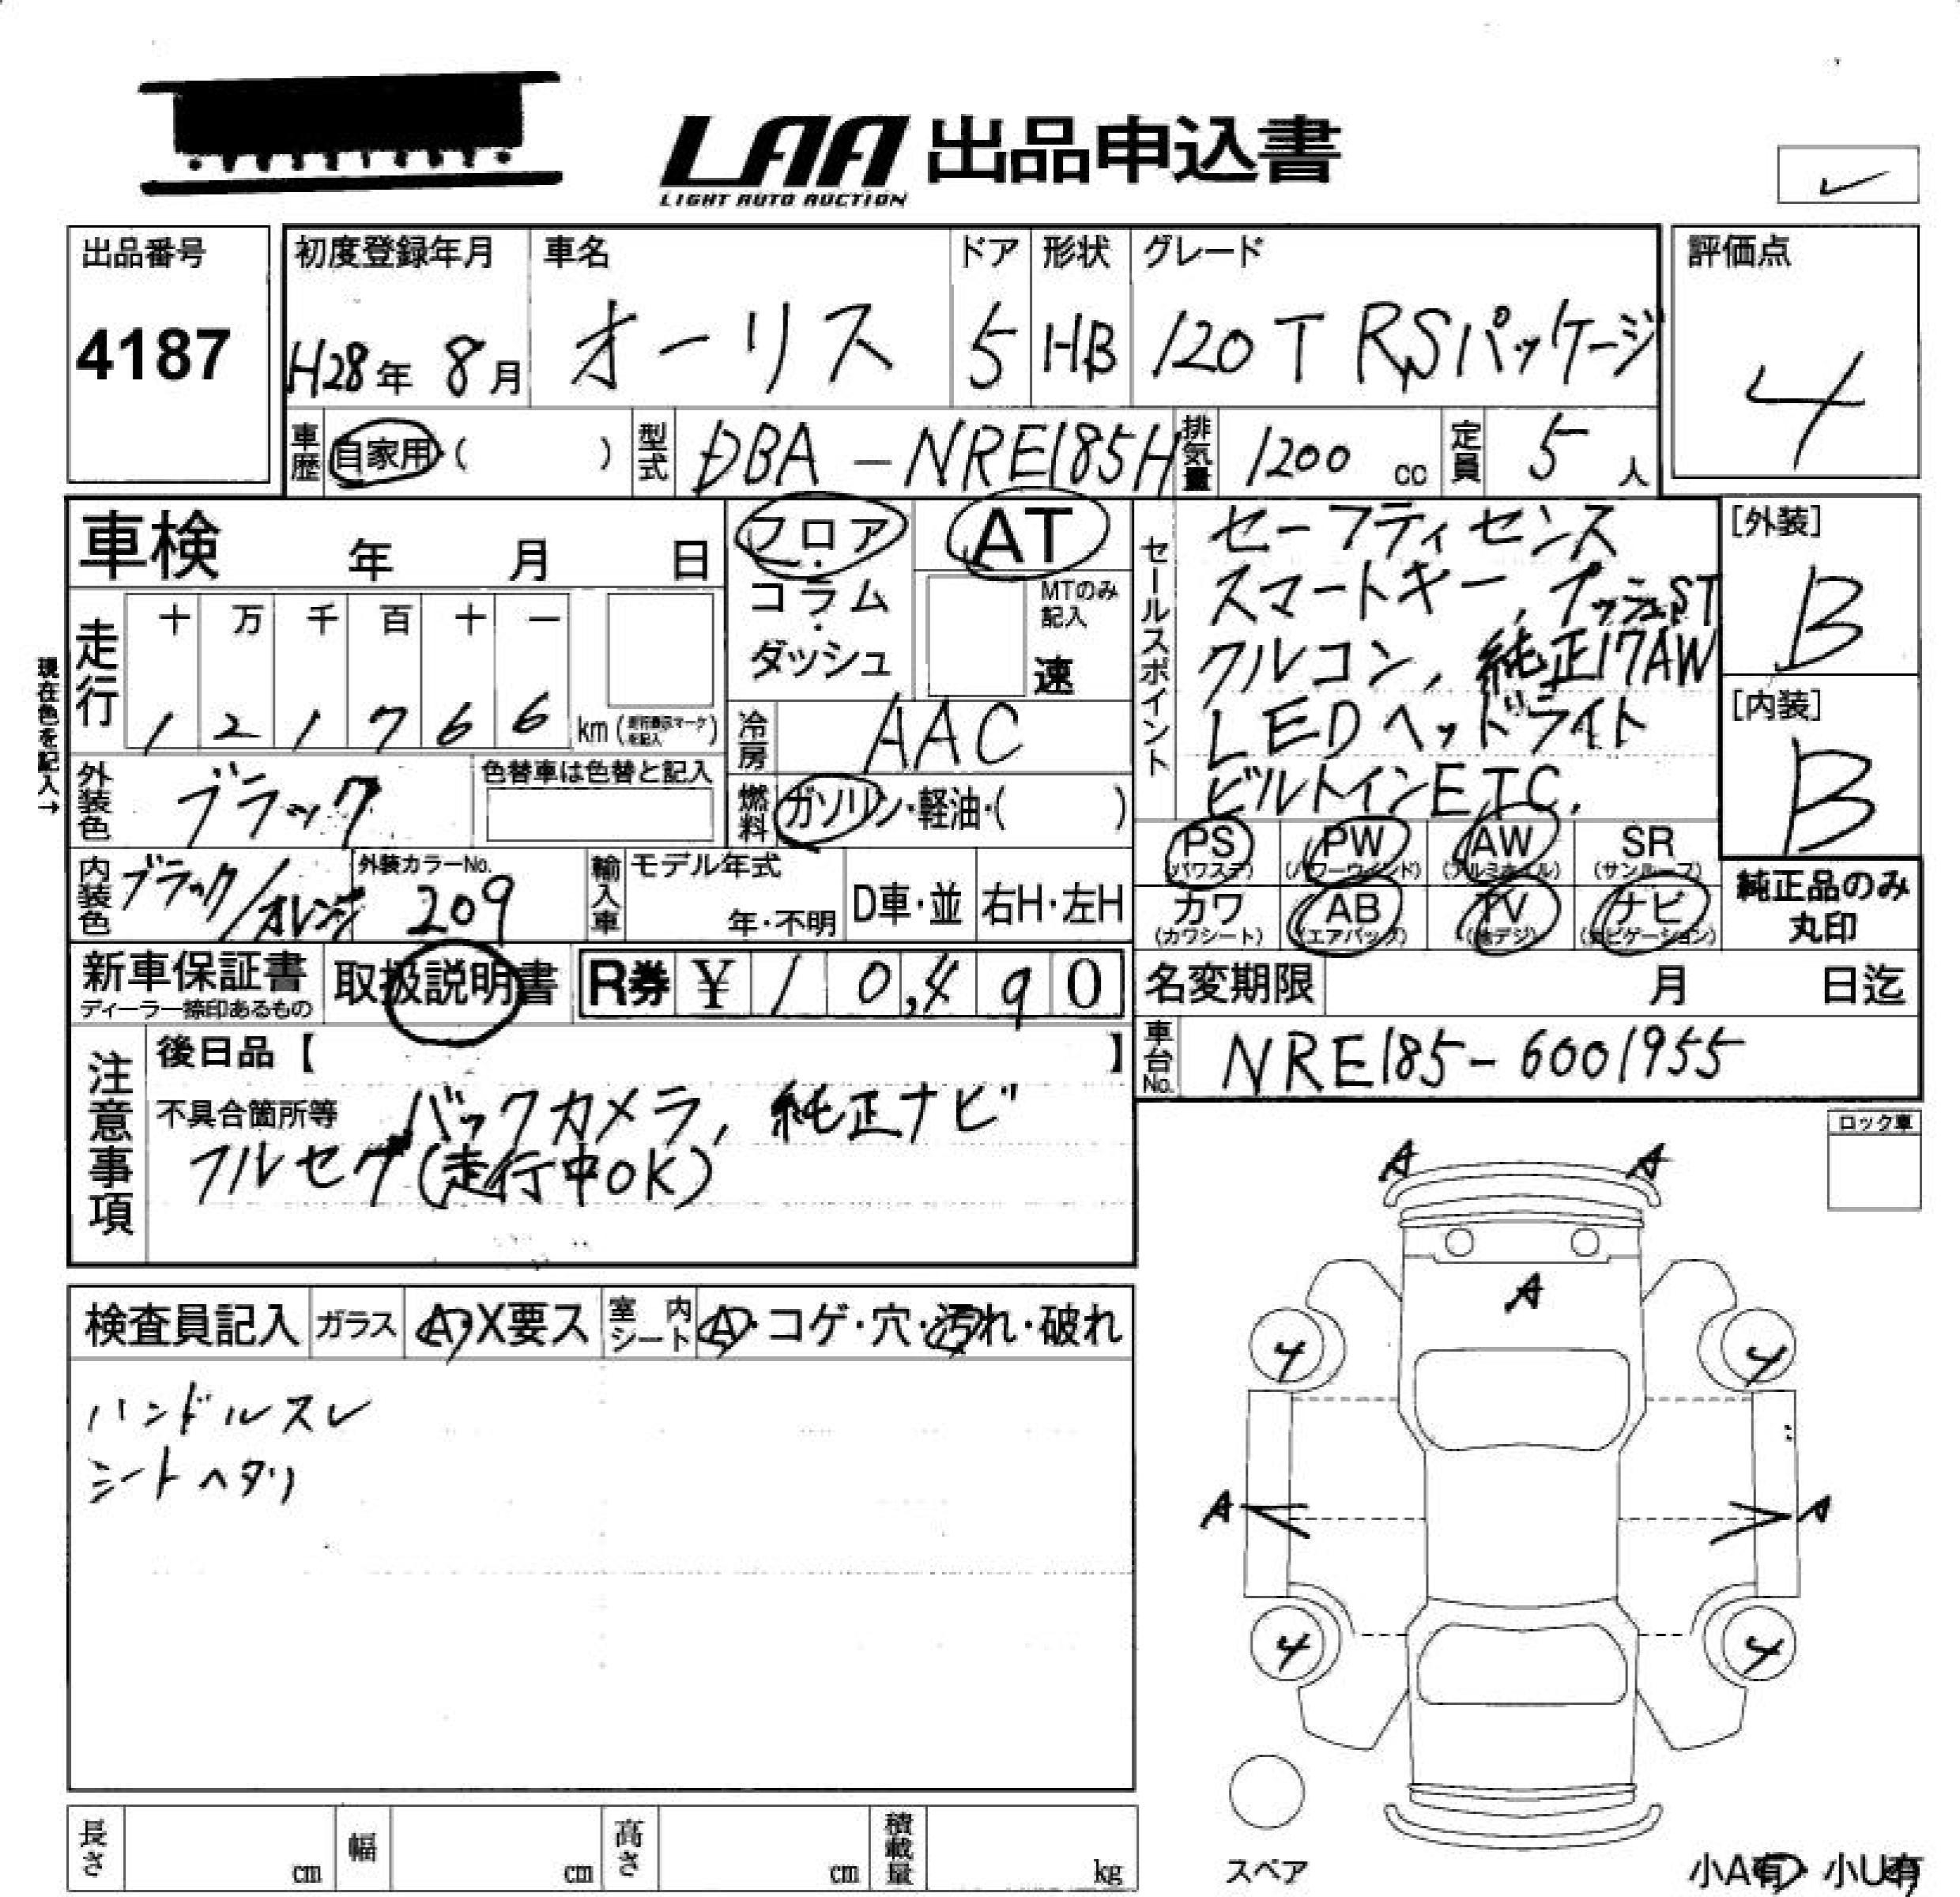 LAA 出品申込書
LIGHT AUTO AUCTION
出品番号
4187
初度登録年月
H28年 8月
車名
オーリス
ドア
5
形状
HB
グレード
120T RSパッケージ
評価点
4
車歴 自家用・( )
型式 DBA-NRE185H
排気量 1200 cc
定員 5 人
車検 年 月 日
フロア・コラム・ダッシュ
AT
MTのみ記入
速
現在色を記入→
走行
十 万 千 百 十 一
1 2 1 7 6 6 km
冷房 AAC
外装色 ブラック
色替車は色替と記入
燃料 ガソリン・軽油・( )
内装色 ブラック/オレンジ
外装カラーNo.
209
輸入車
モデル年式
年・不明
D車・並
右H・左H
セールスポイント
セーフティセンス
スマートキー, プッシュST
クルコン, 純正17AW
LEDヘッドライト
ビルトインETC,
[外装]
B
[内装]
B
PS (パワステ)
PW (パワーウインド)
AW (アルミホイル)
SR (サンルーフ)
カワ (カワシート)
AB (エアバッグ)
TV (地デジ)
ナビ (ナビゲーション)
純正品のみ
丸印
新車保証書
ディーラー捺印あるもの
取扱説明書
R券 ¥ 1 0,4 9 0
名変期限 月 日迄
車台No. NRE185-6001955
注意事項
後日品【 】
不具合箇所等 バックカメラ, 純正ナビ
フルセグ(走行中OK)
ロック車
検査員記入
ガラス A・X要ス
室内シート A・コゲ・穴・汚れ・破れ
ハンドルスレ
シートヘタリ
A A
A
4 4
A A
4 4
スペア
小A有・小U有
長さ cm
幅 cm
高さ cm
積載量 kg